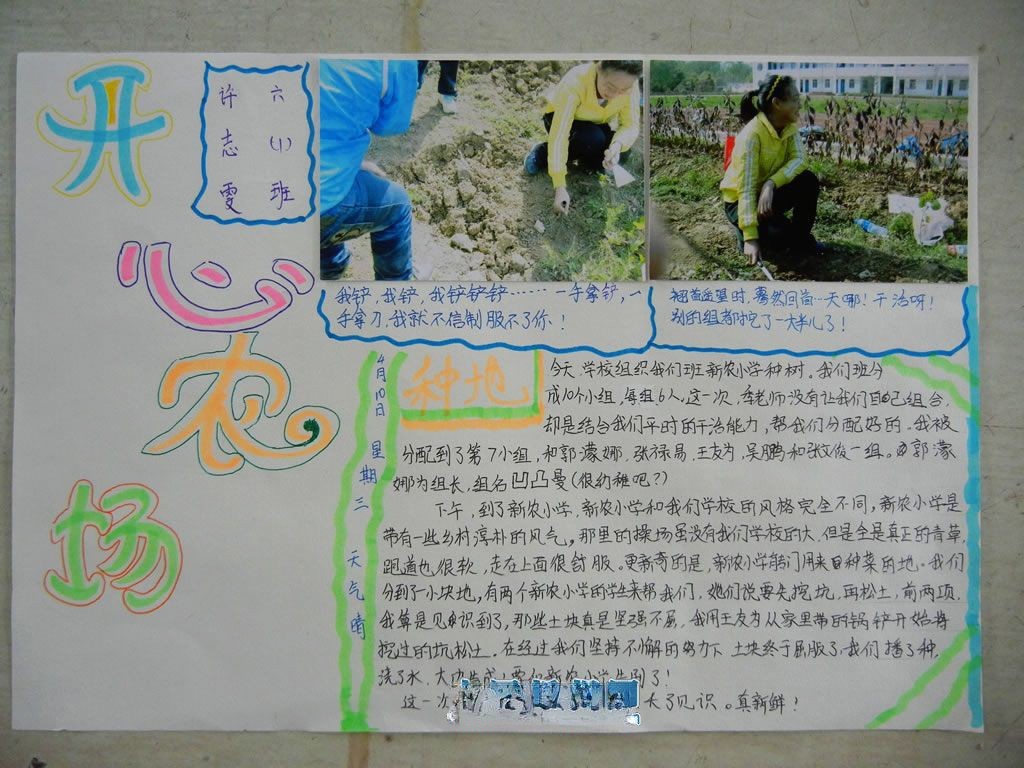 开心农场
六(1)班
许志雯
我铲，我铲，我铲铲铲……一手拿铲，一
手拿刀，我就不信制服不了你！
翘首遥望时，蓦然回首…天哪！干活呀！
别的组都挖了一大半儿了！
4月10日 星期三 天气晴
种地
今天，学校组织我们班新农小学种树。我们班分
成10个小组，每组6人。这一次，季老师没有让我们自己组合，
却是结合我们平时的干活能力，帮我们分配好的。我被
分配到了第7小组，和郭濛娜，张禄易，王友为，吴鹏和张俊一组。由郭濛
娜为组长，组名凹凸曼(很幼稚吧？)
下午，到了新农小学，新农小学和我们学校的风格完全不同，新农小学是
带有一些乡村淳朴的风气，那里的操场虽没有我们学校的大，但是全是真正的青草，
跑道也很软，走在上面很舒服。更新奇的是，新农小学部门用来自种菜的地。我们
分到了小块地，有两个新农小学的学生来帮我们，她们说要先挖坑，再松土，前两项，
我算是见识到了，那些土块真是坚强不屈，我用王友为从家里带的锅铲开始将
挖过的坑松土。在经过我们坚持不懈的努力下，土块终于屈服了，我们播了种，
浇了水，大功告成，要和新农小学告别了！
这一次 大了见识。真新鲜！